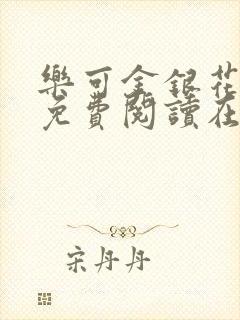 樂可金銀花
免費閱讀在
宋丹丹